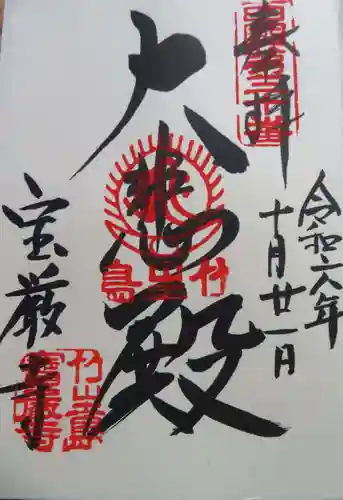 奉拝
令和六年
十月廿一日
大悲殿
竹生島
宝厳寺
竹生島
寶厳寺